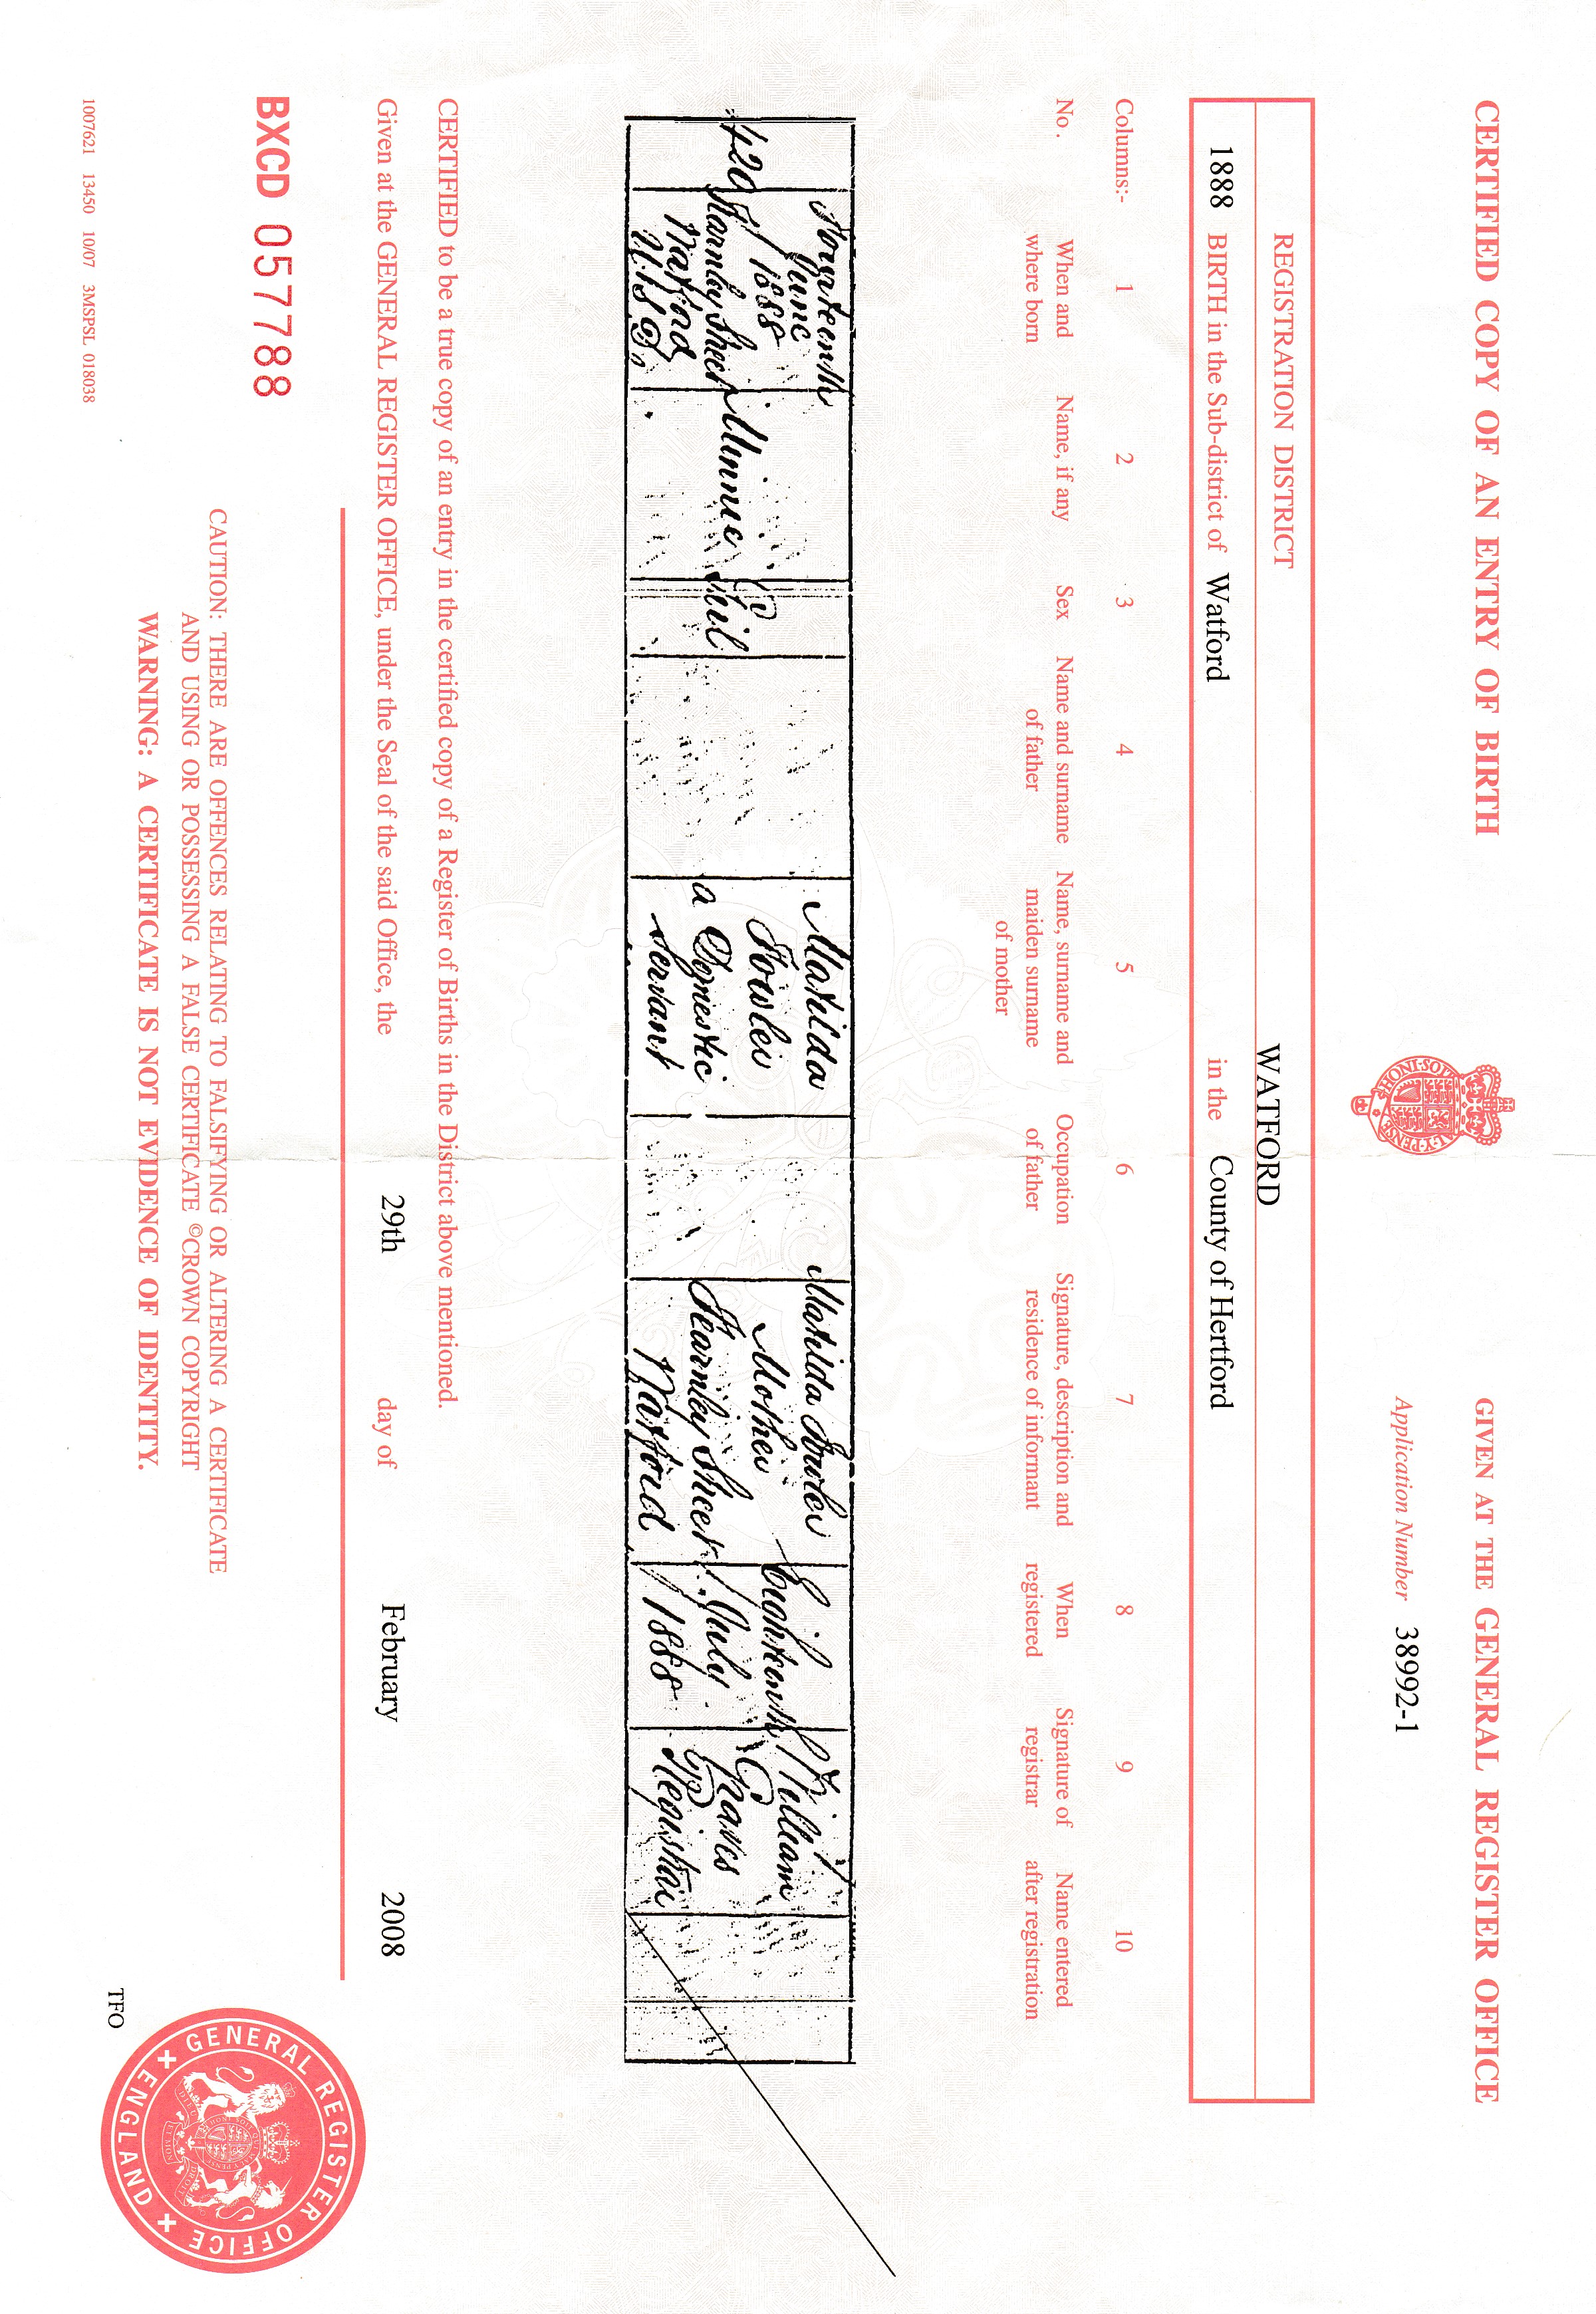 CERTIFIED COPY OF AN ENTRY OF BIRTH
GIVEN AT THE GENERAL REGISTER OFFICE
HONI·SOIT AL·Y·PENSE
Application Number 38992-1
REGISTRATION DISTRICT WATFORD
1888 BIRTH in the Sub-district of Watford in the County of Hertford
Columns:- 1 2 3 4 5 6 7 8 9 10
No. When and where born Name, if any Sex Name and surname of father Name, surname and maiden surname of mother Occupation of father Signature, description and residence of informant When registered Signature of registrar Name entered after registration
420
Fourteenth
June
1888
Fearnley Street
Watford
U.S.D.
Minnie
Girl
Matilda
Fowler
a Domestic
Servant
Matilda Fowler
Mother
Fearnley Street
Watford
Eighteenth
July
1888
William
Graves
Registrar
CERTIFIED to be a true copy of an entry in the certified copy of a Register of Births in the District above mentioned.
Given at the GENERAL REGISTER OFFICE, under the Seal of the said Office, the 29th day of February 2008
BXCD 057788
CAUTION: THERE ARE OFFENCES RELATING TO FALSIFYING OR ALTERING A CERTIFICATE
AND USING OR POSSESSING A FALSE CERTIFICATE ©CROWN COPYRIGHT
WARNING: A CERTIFICATE IS NOT EVIDENCE OF IDENTITY.
GENERAL REGISTER OFFICE
ENGLAND
TFO
1007621 13450 10/07 3MSPSL 018038